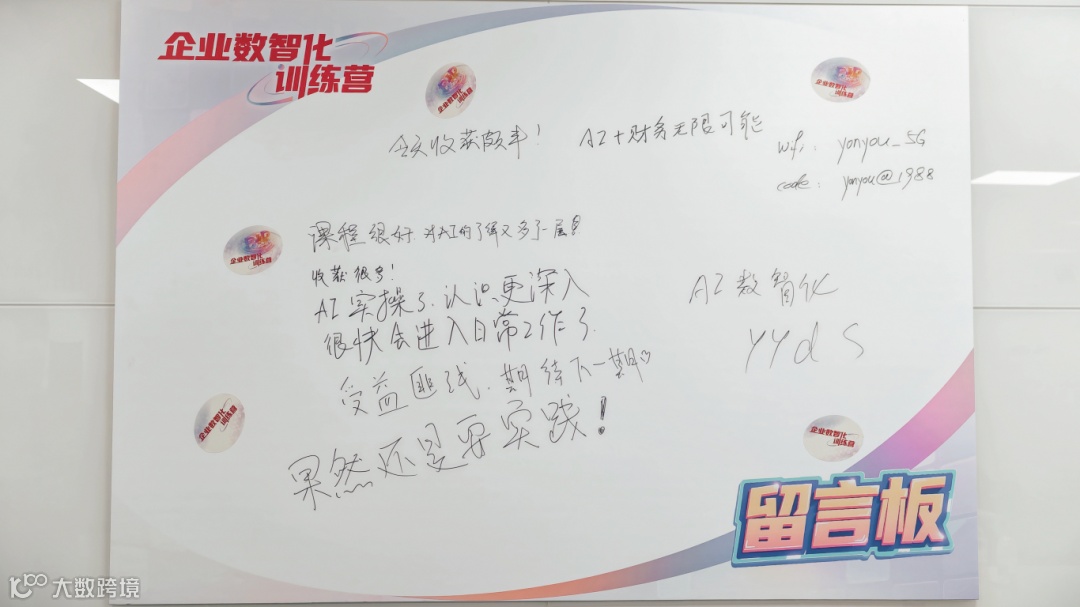 企业数智化
训练营
企业数智化
训练营
企业数智化
训练营
全天收获颇丰！
AI+财务无限可能
wifi: yonyou_5G
code: yonyou@1988
企业数智化
训练营
课程很好，对AI的了解又多了一层
收获很多！
AI实操了，认识更深入
很快会进入日常工作了
AI数智化
YYdS
受益匪浅，期待下一期♡
果然还是要实践！
企业数智化
训练营
企业数智化
训练营
留言板
大数跨境